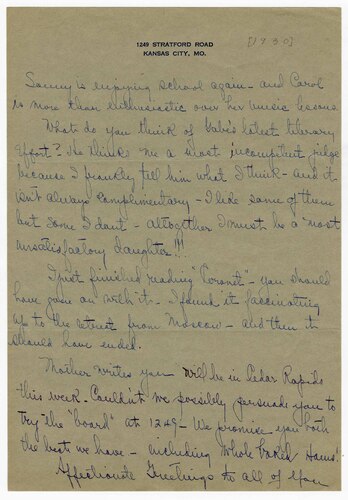 1249 STRATFORD ROAD
KANSAS CITY, MO.
[1930]
Sammy is enjoying school again - and Carol
is more than enthusiastic over her music lessons
What do you think of Gabe's latest literary
effort? He thinks me a most incompetent judge
because I frankly tell him what I think - and it
isn't always complimentary - I like some of them
but some I don't - altogether I must be a "most
unsatisfactory daughter"!!!
I just finished reading "Coronet" - you should
have gone on with it - I found it fascinating
up to the retreat from Moscow - and then it
should have ended.
Mother writes you will be in Cedar Rapids
this week. Couldn't we possibly persuade you to
try the "board" at 1249 - We promise you both
the best we have - including whole baked Hams!
Affectionate Greetings to all of you